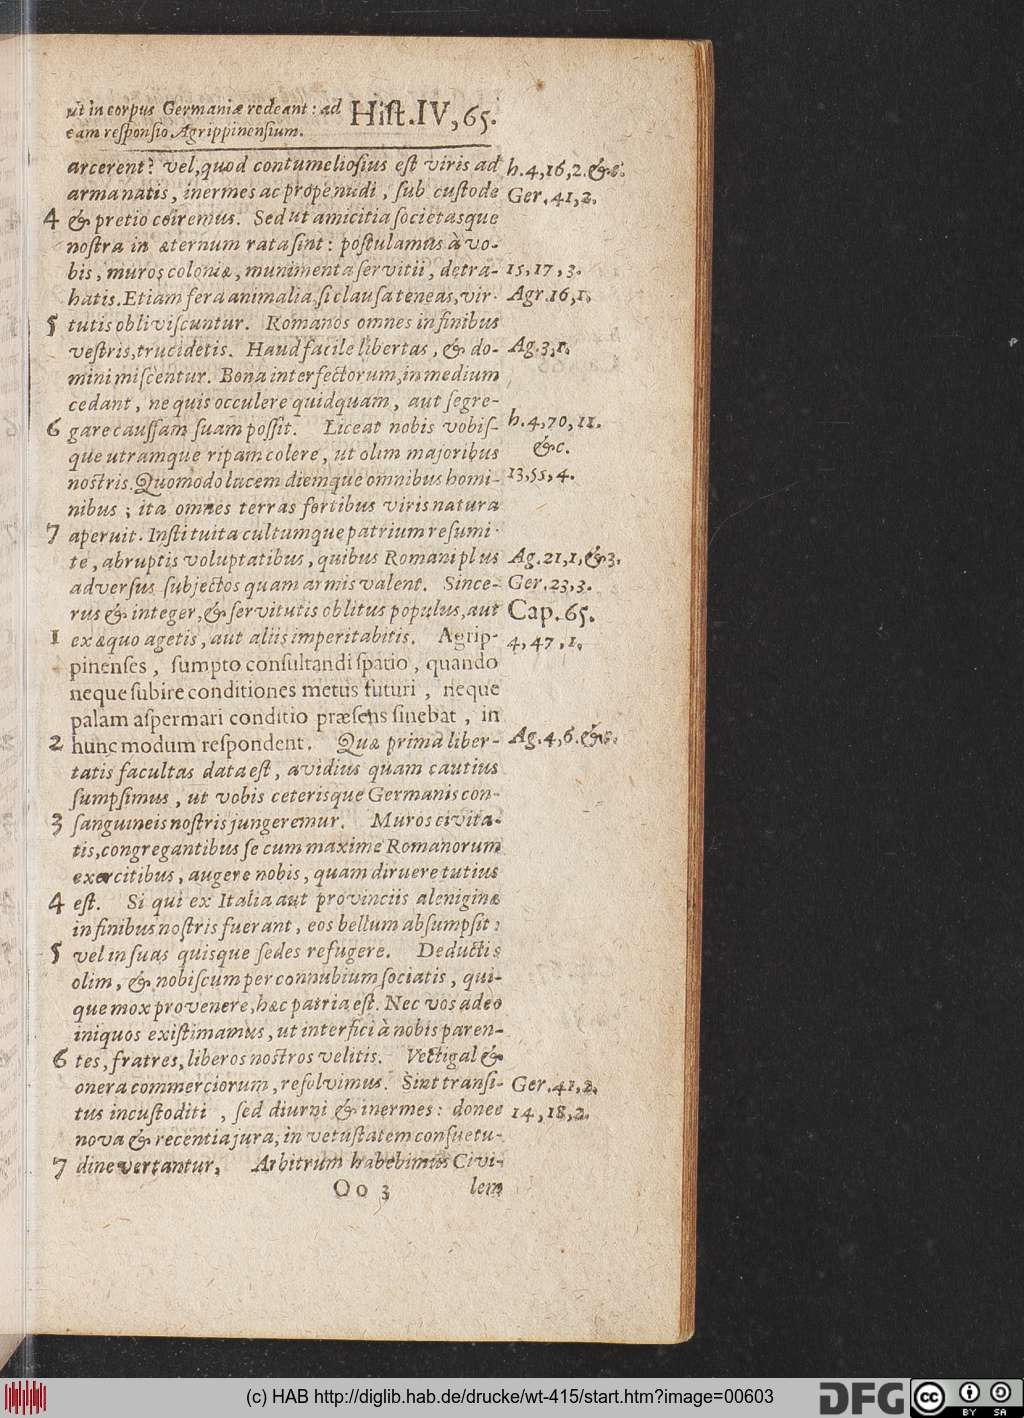 ut in corpus Germaniæ redeant : ad Hiſt. IV, 65.
eam reſponſio Agrippinenſium.
arcerent? vel, quod contumelioſius eſt viris ad h. 4, 16, 2. &c.
arma natis, inermes ac prope nudi, ſub cuſtode Ger. 41, 2.
4 & pretio coiremus. Sed ut amicitia ſocietasque
noſtra in æternum rata ſint : poſtulamus à vo-
bis, muros coloniæ, munimenta ſervitii, detra- 15, 17, 3.
hatis. Etiam fera animalia, ſi clauſa teneas, vir- Agr. 16, 1.
5 tutis obliviſcuntur. Romanos omnes in finibus
veſtris, trucidetis. Haud facile libertas, & do- Ag. 3, 1.
mini miſcentur. Bona interfectorum, in medium
cedant, ne quis occulere quidquam, aut ſegre-
6 gare cauſſam ſuam poſſit. Liceat nobis vobiſ- h. 4, 70, 11.
que utramque ripam colere, ut olim majoribus &c.
noſtris. Quomodo lucem diemque omnibus homi- 13, 55, 4.
nibus ; ita omnes terras fortibus viris natura
7 aperuit. Inſtituita cultumque patrium reſumi-
te, abruptis voluptatibus, quibus Romani plus Ag. 21, 1, & 3.
adverſus ſubjectos quam armis valent. Since- Ger. 23, 3.
rus & integer, & ſervitutis oblitus populus, aut Cap. 65.
1 ex æquo agetis, aut aliis imperitabitis. Agrip- 4, 47, 1.
pinenſes, ſumpto conſultandi ſpatio, quando
neque ſubire conditiones metus futuri, neque
palam aſpermari conditio præſens ſinebat, in
2 hunc modum reſpondent. Quæ prima liber- Ag. 4, 6. &c.
tatis facultas data eſt, avidius quam cautius
ſumpſimus, ut vobis ceterisque Germanis con-
3 ſanguineis noſtris jungeremur. Muros civita-
tis, congregantibus ſe cum maxime Romanorum
exercitibus, augere nobis, quam diruere tutius
4 eſt. Si qui ex Italia aut provinciis alenigine
in finibus noſtris fuerant, eos bellum abſumpſit :
5 vel in ſuas quisque ſedes refugere. Deductis
olim, & nobiſcum per connubium ſociatis, qui-
que mox provenere, hæc patria eſt. Nec vos adeo
iniquos exiſtimamus, ut interfici à nobis paren-
6 tes, fratres, liberos noſtros velitis. Vectigal &
onera commerciorum, reſolvimus. Sint tranſi- Ger. 41, 2.
tus incuſtoditi, ſed diurni & inermes : donec 14, 18, 2.
nova & recentia jura, in vetuſtatem conſuetu-
7 dine vertantur. Arbitrum habebimus Civi-
Oo 3 lem
(c) HAB http://diglib.hab.de/drucke/wt-415/start.htm?image=00603
DFG
cc BY SA